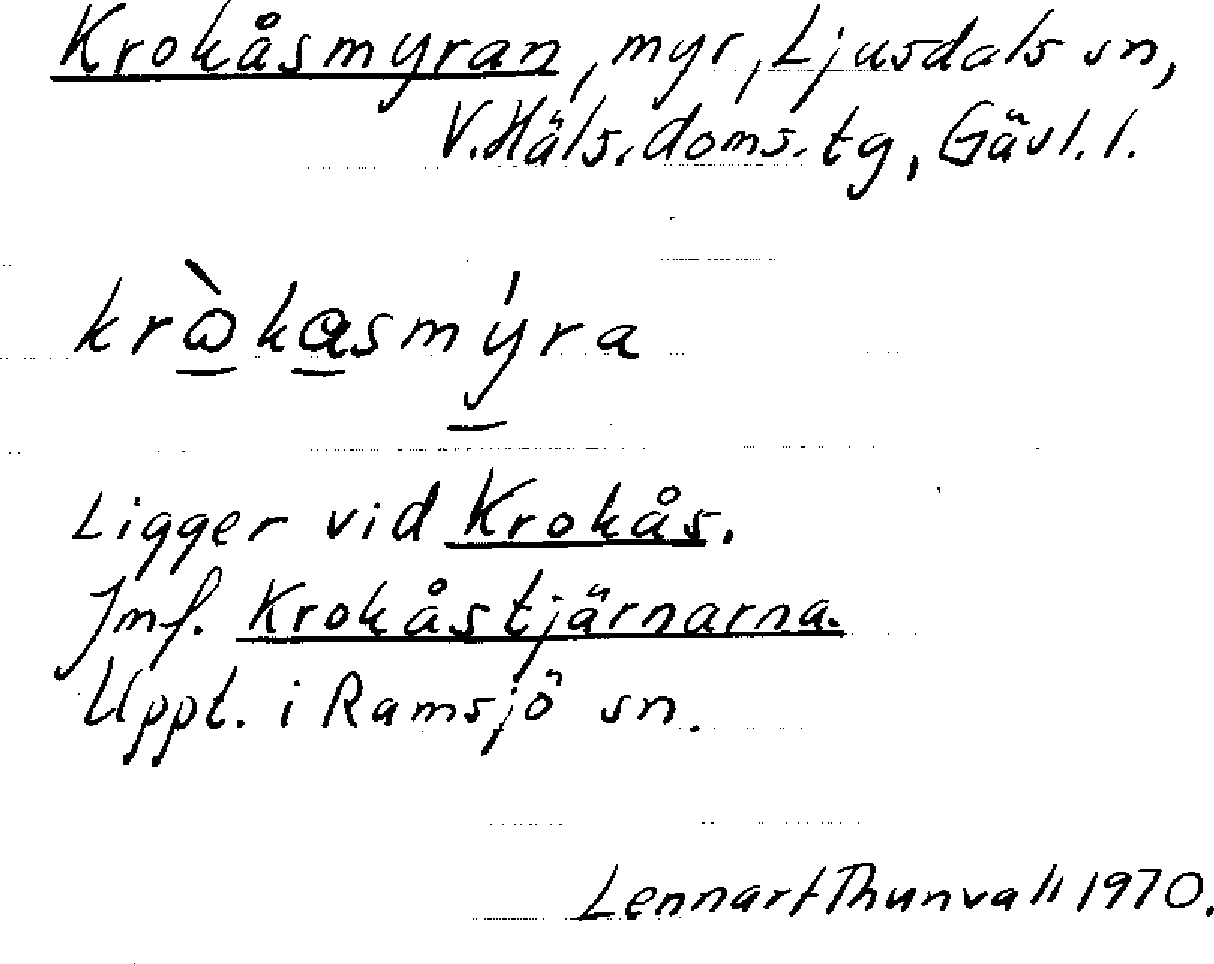 Krokåsmyran, myr, Ljusdals sn,
V. Häls. doms. tg, Gävl. l.
kròkasmýra
Ligger vid Krokås.
Jmf. Krokåstjärnarna.
Uppt. i Ramsjö sn.
Lennart Thunvall 1970.